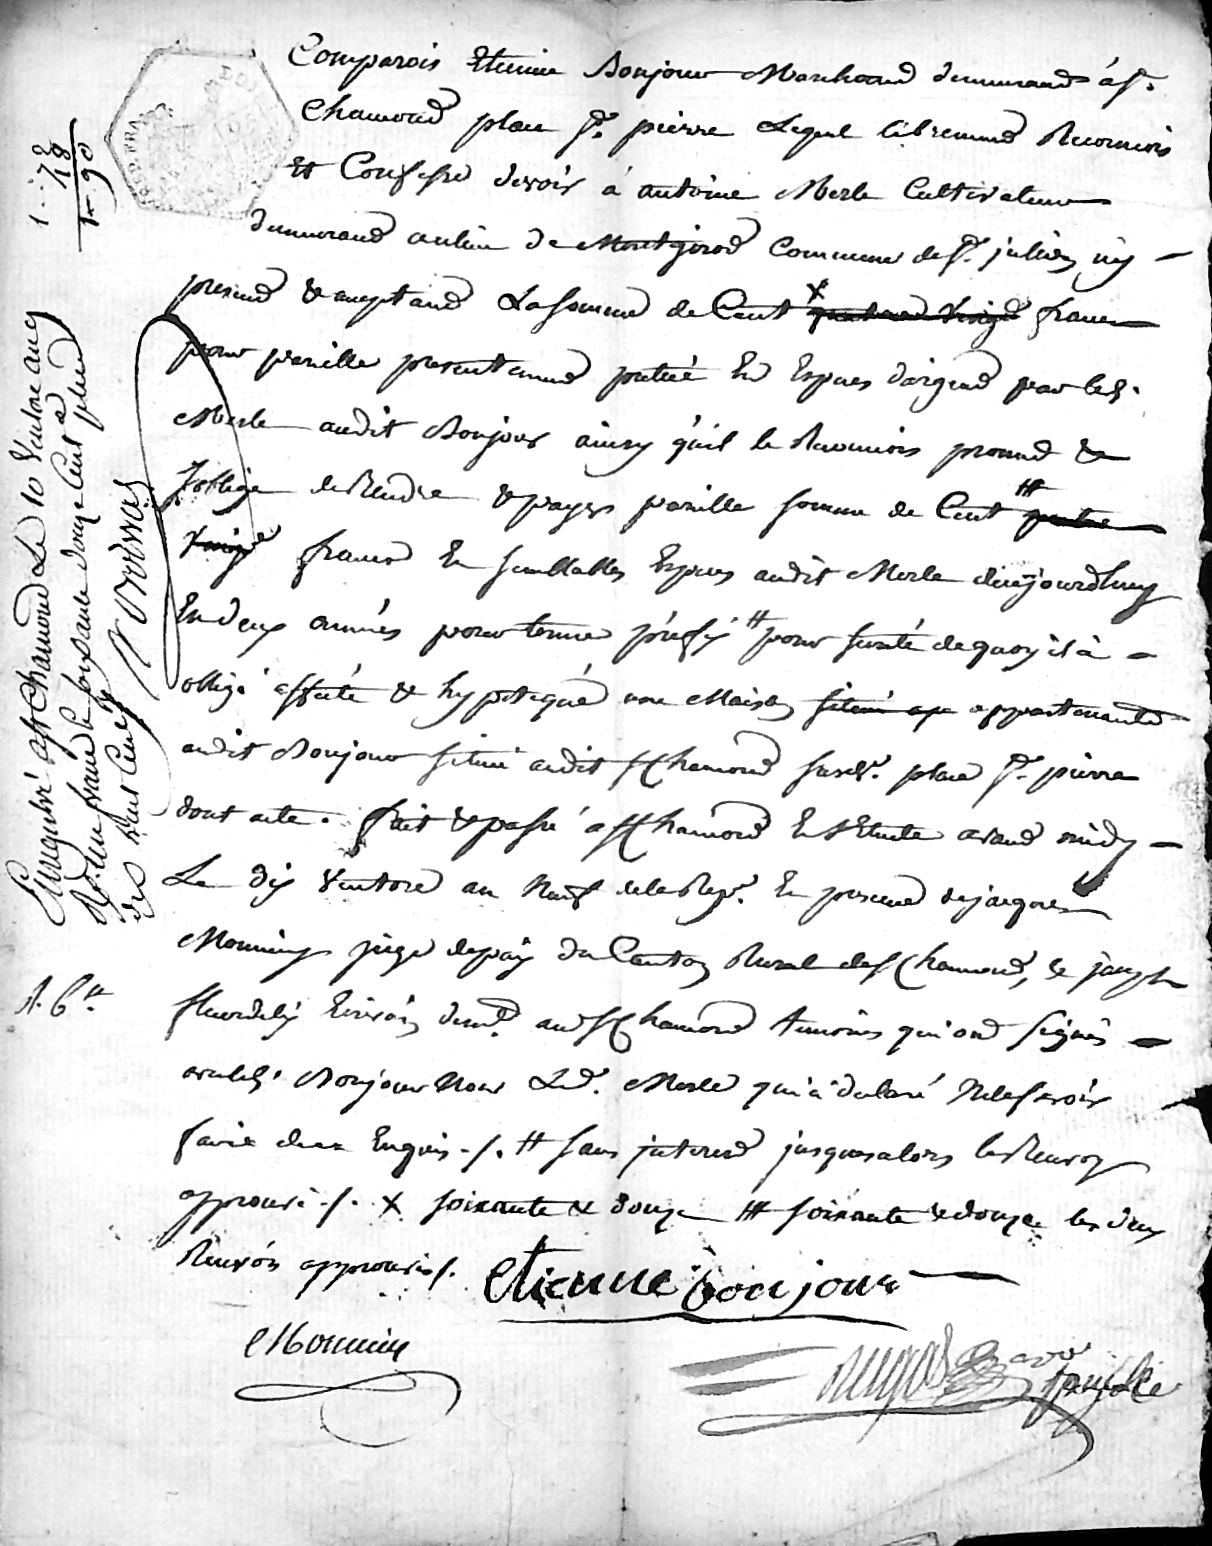 Comparois Etienne Bonjour Marchand demeurant à st.
Chamond place st. pierre Lequel librement Reconnois
Et Confesse devoir à antoine Merle Cultivateur
demeurant au lieu de Montgirod Commune de st. julien icy
present & acceptant La somme de Cent x quatre vingt francs
pour pareille presentement pretée En Especes d'argent par led.
Merle audit Bonjour ainsy qu'il le Reconnois promet &
s'oblige de Rendre & payer pareille somme de Cent ⧻ quatre
vingt francs En semblables Especes audit Merle d'aujourdhuy
En deux années pour terme préfix # pour sureté de quoy il à
obligé affecté & hypotequé une Maison située ap appartenante
audit Bonjour située audit st Chamond susd. place st. pierre
dont acte. fait & passé a st Chamond En l'Etude avant midy
Le dix Ventose an Neuf de la Rep. En presence de jacques
Monniny juge de paix du Canton Rural de st Chamond, & joseph
fleurdelix Ecrivain demt. aud st Chamond temoins qui ont signés
avec led. Bonjour Non Led. Merle qui a declaré Ne le savoir
faire de ce Enquis ./. # sans interet jusques alors le Renvoy
approuvé ./. x soixante & douze ⧻ soixante & douze les deux
Renvois approuvés ./.
etienne bonjour
Monnin
1.. 72
18
1 - 90
Enregistré a st Chamond Le 10 Ventose an 9
R. un franc soixante douze Cent. &
dix huit Cent. pour